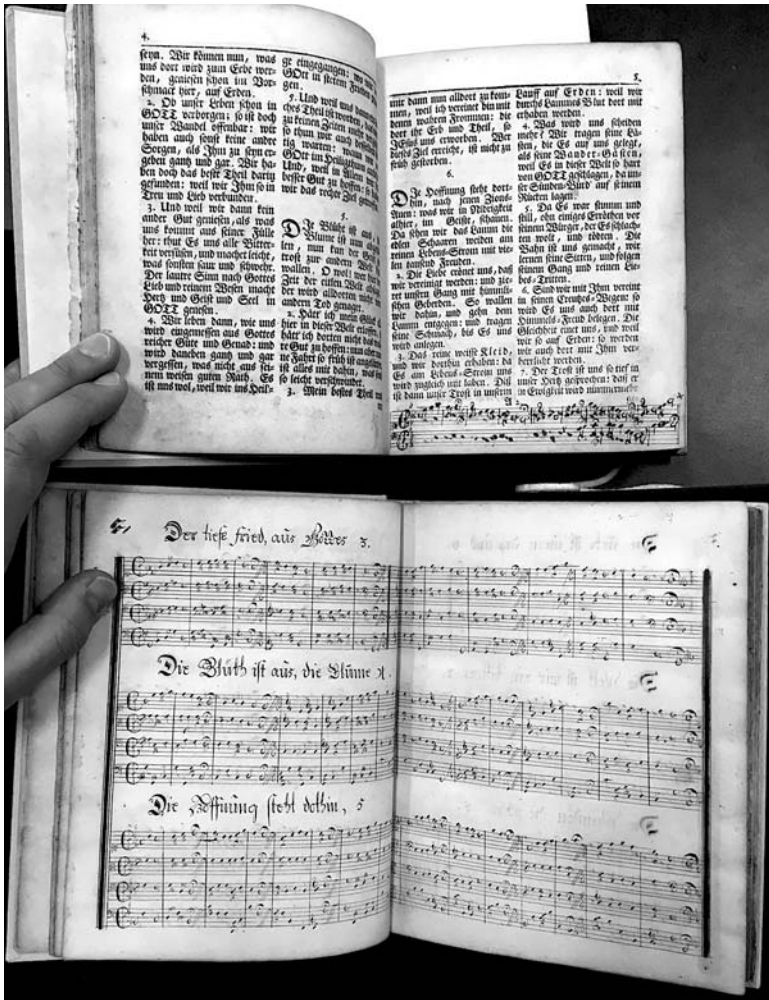 4.
seyn. Wir können nun, was
uns dort wird zum Erbe wer-
den, geniesen schon im Vor-
schmack hier, auf Erden.
2. Ob unser Leben schon in
GOTT verborgen; so ist doch
unser Wandel offenbar: wir
haben auch sonst keine andre
Sorgen, als Ihm zu seyn er-
geben gantz und gar. Wir ha-
ben doch das beste Theil darin
gefunden: weil wir Ihm so in
Treu und Lieb verbunden.
3. Und weil wir dann kein
ander Gut geniesen, als was
uns kommt aus seiner Fülle
her: thut Es uns alle Bitter-
keit versüsen, und machet leicht,
was sonsten saur und schwehr.
Der lautre Sinn nach Gottes
Lieb und reinem Wesen macht
Hertz und Geist und Seel in
GOTT genesen.
4. Wir leben dann, wie uns
wird eingemessen aus Gottes
reicher Güte und Genad: und
wird daneben gantz und gar
vergessen, was nicht aus sei-
nem weisen guten Rath. Es
ist uns wol, weil wir ins Heil-
ge eingegangen: wo wir
GOtt in stetem Frieden
gen.
5. Und weil uns dann
ches Theil ist worden,
zu keinen Zeiten nicht
so thun wir auch
tig warten: wann wir
GOtt im Heiligthum
Und, weil in Allem
besser Gut zu hoffen: so
wir das rechte Ziel
5.
DIe Blüht ist aus,
Blume ist nun
len, nun kan der Geist
trost zur andern Welt
wallen. O wol! wer hier
Zeit der eitlen Welt
der wird alldorten nicht
andern Tod genaget.
2. Hätt ich mein Glück
hier in dieser Welt erloffen,
hätt ich dorten nicht das
re Gut zu hoffen: nun aber
ne Fahrt so früh ist ausgelitten,
ist alles mit dahin, was
so leicht verschwindet.
3. Mein bestes Theil
5.
mit dann nun alldort zu kom-
men, weil ich vereint bin mit
denen wahren Frommen: die
dort ihr Erb und Theil, so
JEsus uns erworben. Wer
dieses Ziel erreicht, ist nicht zu
früh gestorben.
6.
DIe Hoffnung steht dort-
hin, nach jenen Zions-
Auen: was wir in Nidrigkeit
alhier, im Geist, schauen.
Da sehen wir das Lamm die
edlen Schaaren weiden am
reinen Lebens-Strom mit vie-
len tausend Freuden.
2. Die Liebe crönet uns, daß
wir vereinigt werden: und zie-
ret unsern Gang mit himmli-
schen Geberden. So wallen
wir dahin, und gehn dem
Lamm entgegen: und tragen
seine Schmach, bis Es uns
wird anlegen.
3. Das reine weisse Kleid,
und wir dorthin erhaben: da
Es am Lebens-Strom uns
wird zugleich mit laben. Diß
ist dann unser Trost in unserm
Lauff auf Erden: weil wir
durchs Lammes Blut dort mit
erhaben werden.
4. Was wird uns scheiden
mehr? Wir tragen seine La-
sten, die Es auf uns gelegt,
als seine Wander-Gästen,
weil Es in dieser Welt so hart
von GOTT geschlagen, da un-
sre Sünden-Bürd auf seinem
Rücken lagen.
5. Da Es war stumm und
still, ohn einiges Erröthen vor
seinem Würger, der Es schlach-
ten wolt, und tödten. Die
Bahn ist uns gemacht, wir
lernen seine Sitten, und folgen
seinem Gang und reinen Lie-
bes-Tritten.
6. Sind wir mit Ihm vereint
in seinen Creutzes-Wegen: so
wird Es uns auch dort mit
Himmels-Freud belegen. Die
Gleichheit einet uns, und weil
wir so auf Erden: so werden
wir auch dort mit Ihm ver-
herrlicht werden.
7. Der Trost ist uns so tief in
unser Hertz gesprochen: daß er
in Ewigkeit wird nimmermehr
Der tiefe fried, aus Gottes 3.
Die Blüth ist aus, die Blume 4.
Die Hoffnung steht dohin, 5